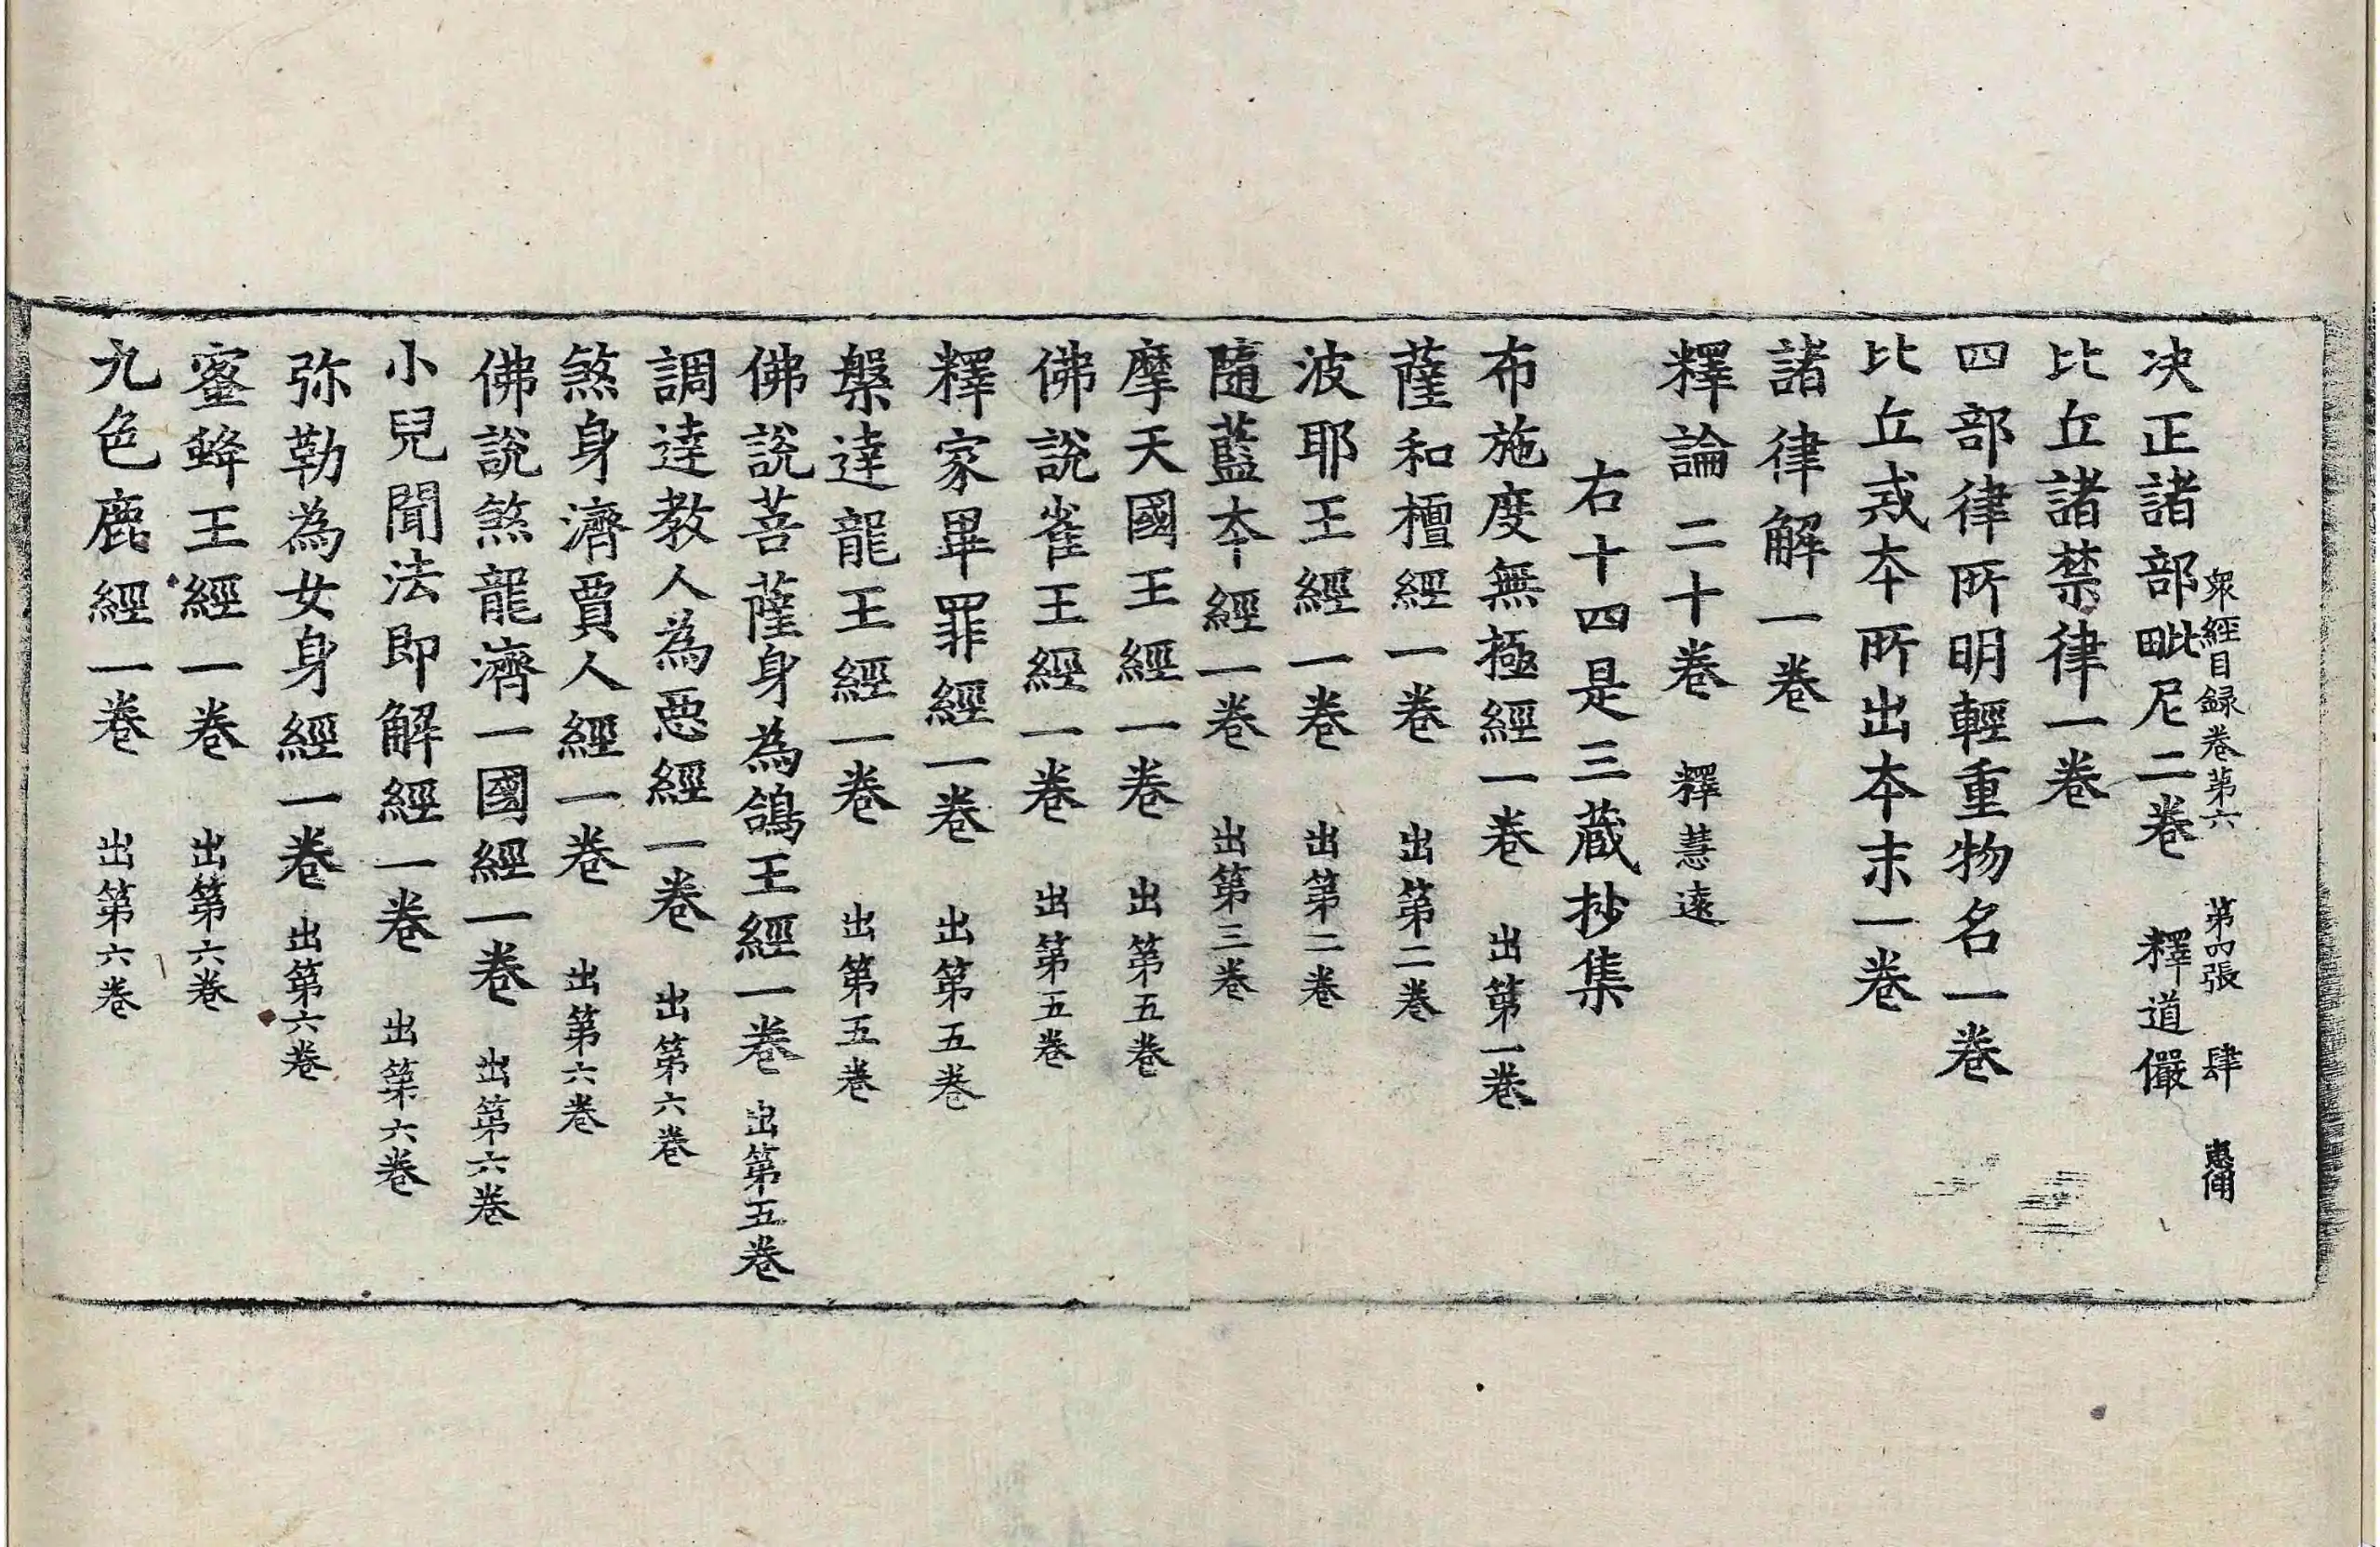 衆經目録卷第六　第四張　肆　惠侕
决正諸部毗尼二卷　釋道儼
比丘諸禁律一卷
四部律所明輕重物名一卷
比丘戒夲所出夲末一卷
諸律解一卷
釋論二十卷　釋慧遠
右十四是三蔵抄集
布施度無極經一卷　出第一卷
薩和檀經一卷　出第二卷
波耶王經一卷　出第二卷
隨藍夲經一卷　出第三卷
摩天國王經一卷　出第五卷
佛說雀王經一卷　出第五卷
釋家畢罪經一卷　出第五卷
槃達龍王經一卷　出第五卷
佛說菩薩身為鴿王經一卷　出第五卷
調達教人為惡經一卷　出第六卷
煞身濟賈人經一卷　出第六卷
佛說煞龍濟一國經一卷　出第六卷
小兒聞法即解經一卷　出第六卷
弥勒為女身經一卷　出第六卷
蜜蜂王經一卷　出第六卷
九色鹿經一卷　出第六卷